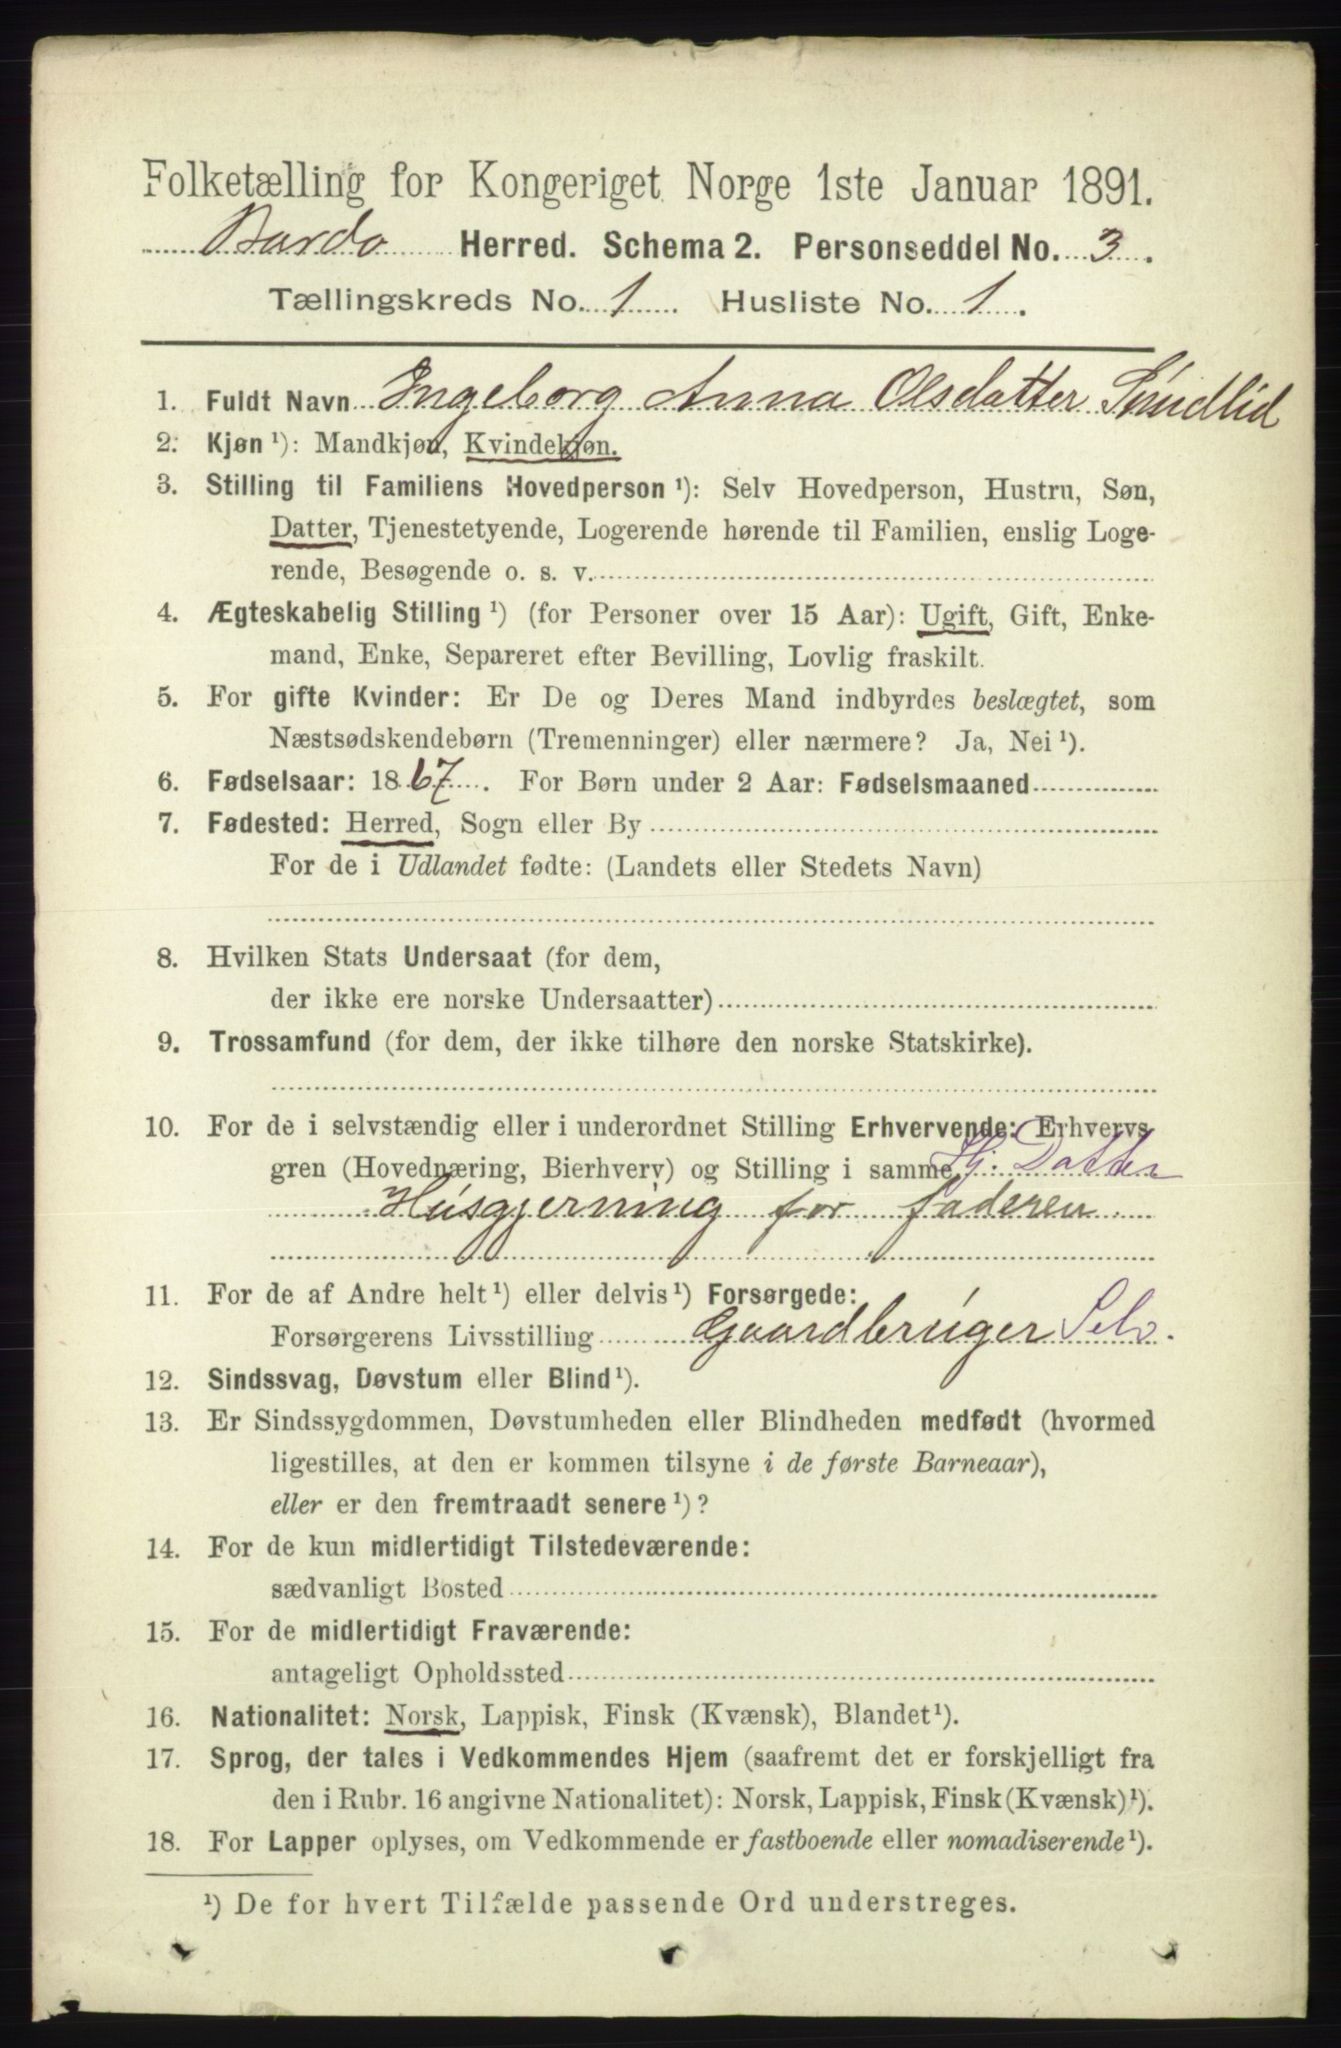 Folketælling for Kongeriget Norge 1ste Januar 1891.
Bardo Herred. Schema 2. Personseddel No. 3.
Tællingskreds No. 1 Husliste No. 1.
1. Fuldt Navn Ingeborg Anna Olsdatter Sundlid
2. Kjøn ¹): Mandkjøn, Kvindekjøn.
3. Stilling til Familiens Hovedperson ¹): Selv Hovedperson, Hustru, Søn,
Datter, Tjenestetyende, Logerende hørende til Familien, enslig Loge-
rende, Besøgende o. s. v.
4. Ægteskabelig Stilling ¹) (for Personer over 15 Aar): Ugift, Gift, Enke-
mand, Enke, Separeret efter Bevilling, Lovlig fraskilt.
5. For gifte Kvinder: Er De og Deres Mand indbyrdes beslægtet, som
Næstsødskendebørn (Tremenninger) eller nærmere? Ja, Nei ¹).
6. Fødselsaar: 1867. For Børn under 2 Aar: Fødselsmaaned
7. Fødested: Herred, Sogn eller By
For de i Udlandet fødte: (Landets eller Stedets Navn)
8. Hvilken Stats Undersaat (for dem,
der ikke ere norske Undersaatter)
9. Trossamfund (for dem, der ikke tilhøre den norske Statskirke).
10. For de i selvstændig eller i underordnet Stilling Erhvervende: Erhvervs
gren (Hovednæring, Bierhverv) og Stilling i samme Hj. Datter
Husgjerning for faderen.
11. For de af Andre helt ¹) eller delvis ¹) Forsørgede:
Forsørgerens Livsstilling Gaardbruger Selv.
12. Sindssvag, Døvstum eller Blind ¹).
13. Er Sindssygdommen, Døvstumheden eller Blindheden medfødt (hvormed
ligestilles, at den er kommen tilsyne i de første Barneaar),
eller er den fremtraadt senere ¹)?
14. For de kun midlertidigt Tilstedeværende:
sædvanligt Bosted
15. For de midlertidigt Fraværende:
antageligt Opholdssted
16. Nationalitet: Norsk, Lappisk, Finsk (Kvænsk), Blandet ¹).
17. Sprog, der tales i Vedkommendes Hjem (saafremt det er forskjelligt fra
den i Rubr. 16 angivne Nationalitet): Norsk, Lappisk, Finsk (Kvænsk) ¹).
18. For Lapper oplyses, om Vedkommende er fastboende eller nomadiserende ¹).
¹) De for hvert Tilfælde passende Ord understreges.